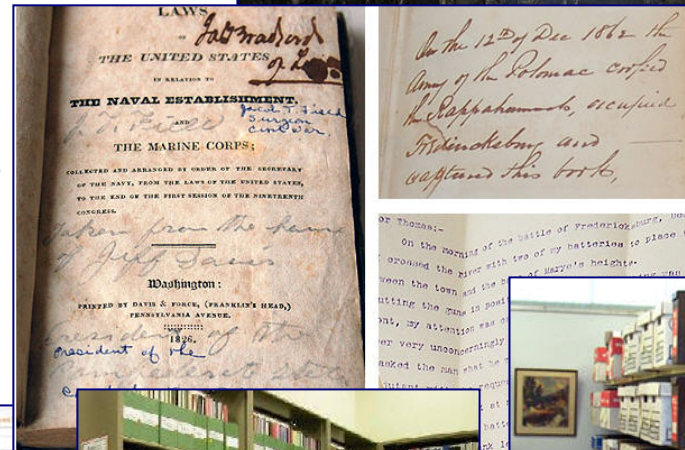 LAWS
OF
THE UNITED STATES
IN RELATION TO
THE NAVAL ESTABLISHMENT,
Jacob T. Field
Surgeon
Civil War.
AND
J. T. Field
THE MARINE CORPS;
COLLECTED AND ARRANGED BY ORDER OF THE SECRETARY
OF THE NAVY, FROM THE LAWS OF THE UNITED STATES,
TO THE END OF THE FIRST SESSION OF THE NINETEENTH
CONGRESS.
Taken from the home
of Jeff Davis
Washington:
PRINTED BY DAVIS & FORCE, (FRANKLIN'S HEAD,)
PENNSYLVANIA AVENUE.
1826.
President of the
President of the
On the 12th of Dec 1862 the
Army of the Potomac crossed
the Rappahannock, occupied
Fredericksburg and
captured this book,
or Thomas:-
On the morning of the battle of Fredericksburg,
crossed the river with two of my batteries to place
ween the town and the base of Marye's heights.
utting the guns in posi
ont, my attention was c
er very unconcerningly
asked the man what he